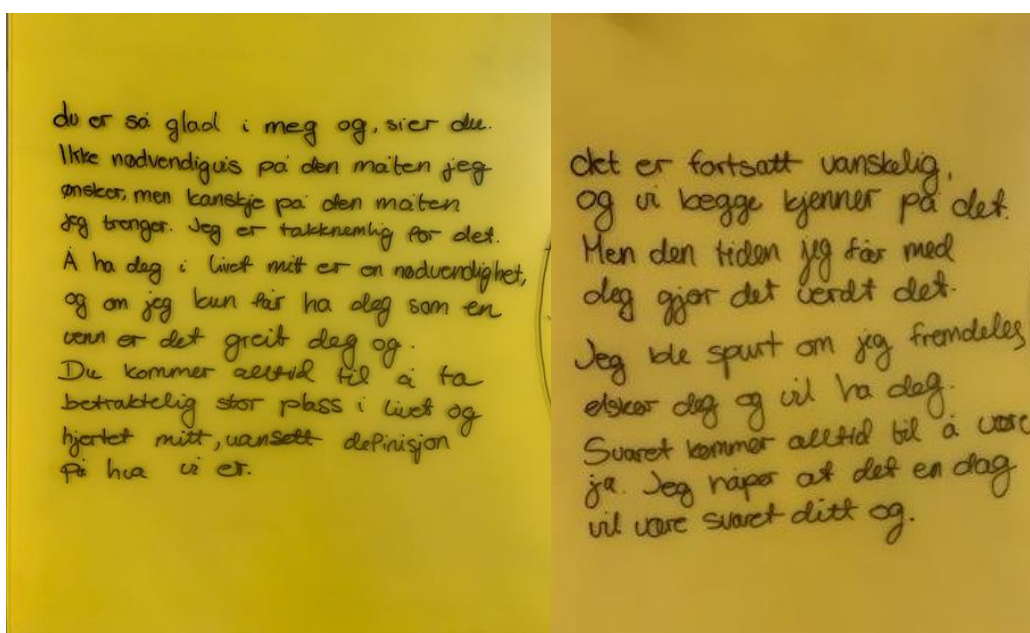 du er så glad i meg og, sier du.
Ikke nødvendigvis på den måten jeg
ønsker, men kanskje på den måten
jeg trenger. Jeg er takknemlig for det.
Å ha deg i livet mitt er en nødvendighet,
og om jeg kun får ha deg som en
venn er det greit deg og.
Du kommer alltid til å ta
betraktelig stor plass i livet og
hjertet mitt, uansett definisjon
på hva vi er.
det er fortsatt vanskelig,
og vi begge kjenner på det.
Men den tiden jeg får med
deg gjør det verdt det.
Jeg ble spurt om jeg fremdeles
elsker deg og vil ha deg.
Svaret kommer alltid til å være
ja. Jeg håper at det en dag
vil være svaret ditt og.